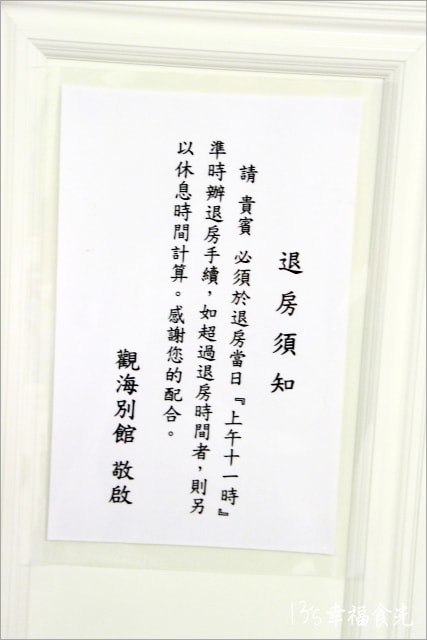 退房須知
請 貴賓 必須於退房當日『上午十一時』
準時辦退房手續，如超過退房時間者，則另
以休息時間計算。感謝您的配合。
觀海別館 敬啟
13's幸福食光